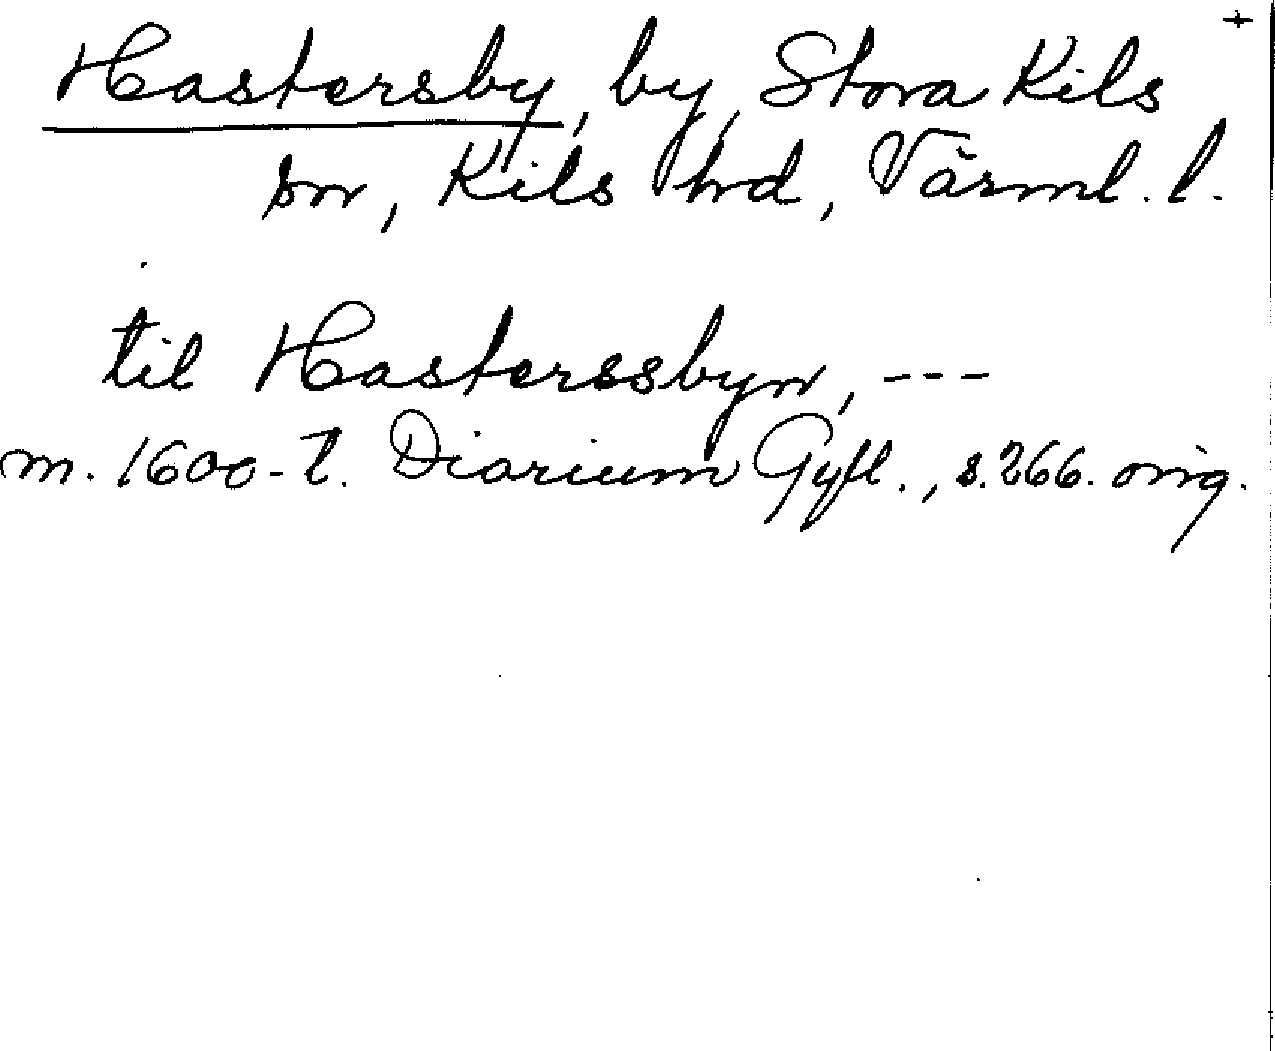 +
Hastersby, by, Stora Kils
sn, Kils hrd, Värml. l.
til Hasterssbyn, ---
m. 1600-t. Diarium Gyll., s. 266. orig.